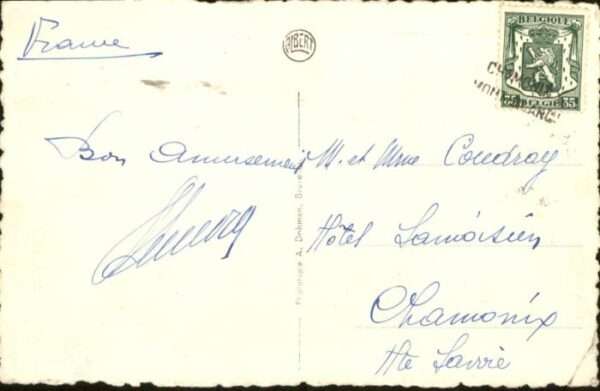 France
ALBERT
BELGIQUE
BELGIE
35 35
CHAMONIX
MONT-BLANC
Bon amusement
M. et Mme Coudray
Hôtel
Chamonix
Hte Savoie
Phototypie A. Dohmen, Bruxelles